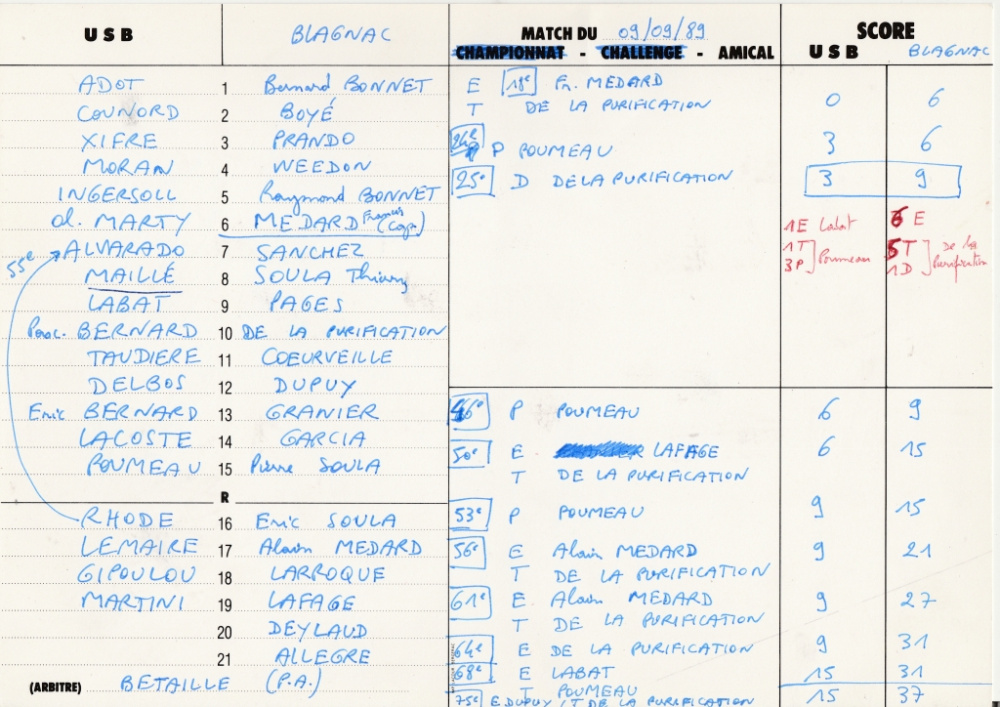 USB BLAGNAC MATCH DU 09/09/89 SCORE
CHAMPIONNAT - CHALLENGE - AMICAL USB BLAGNAC
ADOT 1 Bernard BONNET
COUNORD 2 BOYÉ
XIFRE 3 PRANDO
MORAN 4 WEEDON
INGERSOLL 5 Raymond BONNET
d. MARTY 6 MEDARD Francis (Cap)
55e ALVARADO 7 SANCHEZ
MAILLÉ 8 SOULA Thierry
LABAT 9 PAGES
Pasc. BERNARD 10 DE LA PURIFICATION
TAUDIERE 11 COEURVEILLE
DELBOS 12 DUPUY
Eric BERNARD 13 GRANIER
LACOSTE 14 GARCIA
POUMEAU 15 Pierre SOULA
R
RHODE 16 Eric SOULA
LEMAIRE 17 Alain MEDARD
GIPOULOU 18 LARROQUE
MARTINI 19 LAFAGE
20 DEYLAUD
21 ALLEGRE
(ARBITRE) BETAILLE (P.A.)
18e E Fr. MEDARD
T DE LA PURIFICATION 0 6
24e P POUMEAU 3 6
25e D DE LA PURIFICATION 3 9
1E Labat 6 E
1T 3P Poumeau 5T 1D De la Purification
46e P POUMEAU 6 9
50e E LAFAGE 6 15
T DE LA PURIFICATION
53e P POUMEAU 9 15
56e E Alain MEDARD 9 21
T DE LA PURIFICATION
61e E Alain MEDARD 9 27
T DE LA PURIFICATION
64e E DE LA PURIFICATION 9 31
68e E LABAT 15 31
T POUMEAU
75e E DUPUY / T DE LA PURIFICATION 15 37